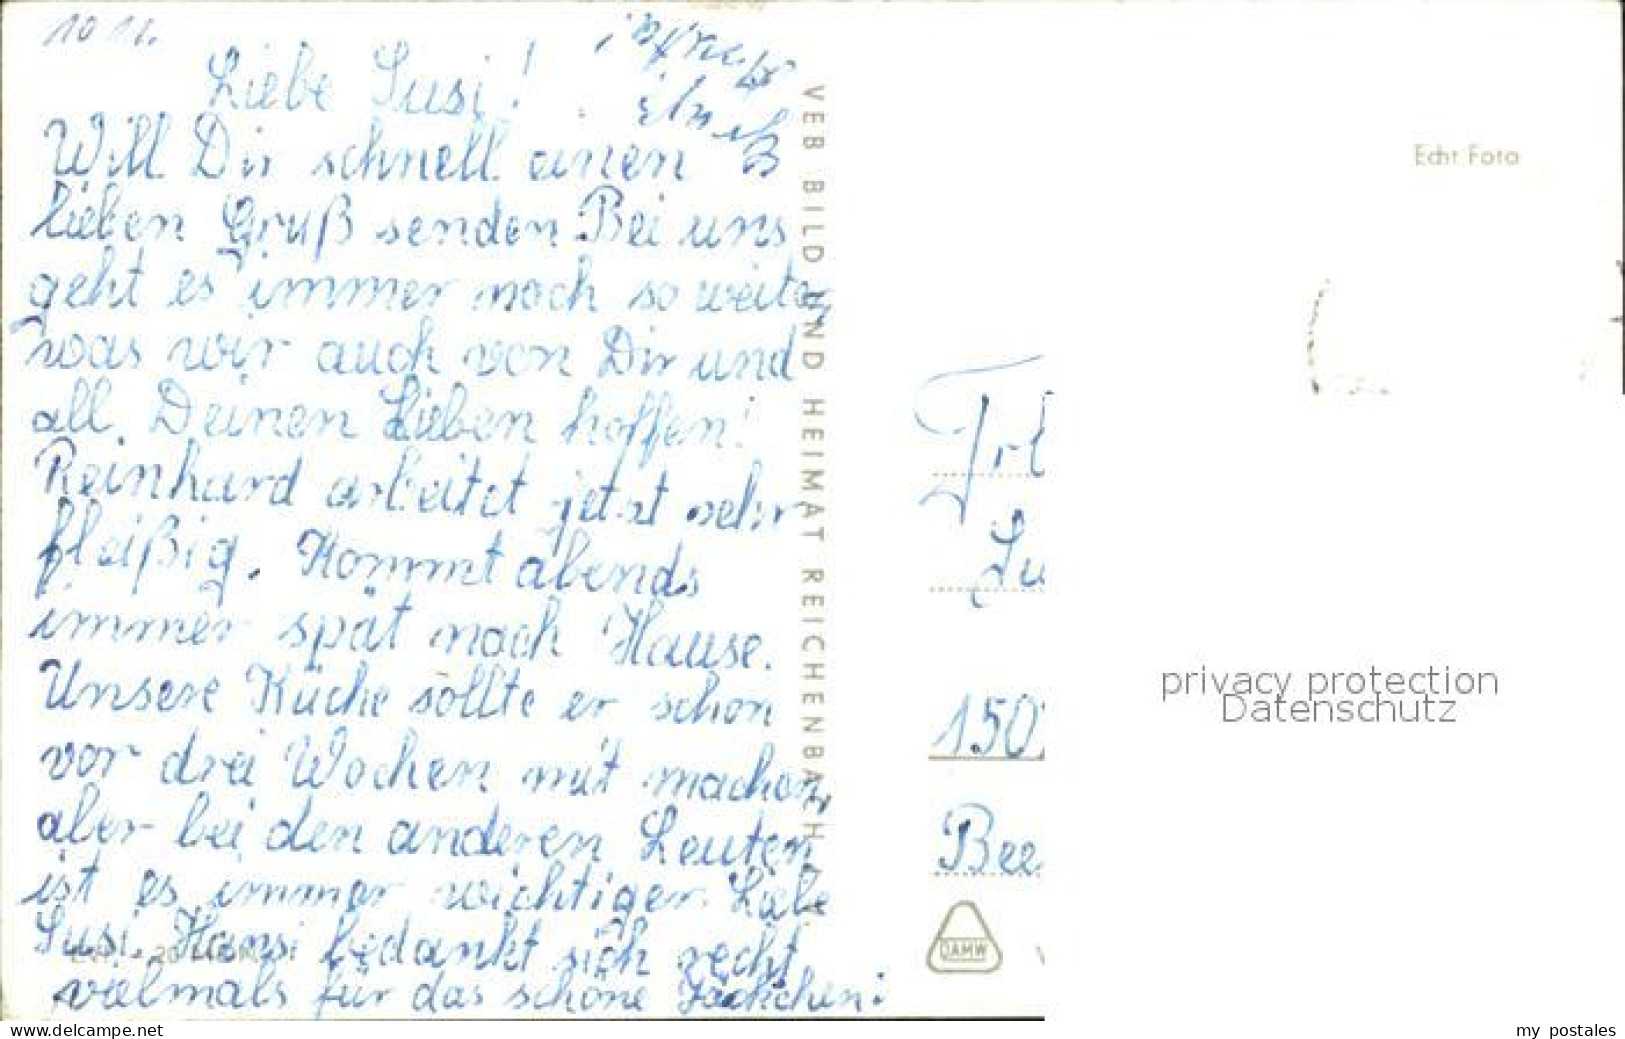 10 11.
Liebe Susi!
Will Dir schnell einen
lieben Gruß senden. Bei uns
geht es immer noch so weiter,
was wir auch von Dir und
all. Deinen Lieben hoffen!
Reinhard arbeitet jetzt sehr
fleißig. Kommt abends
immer spät nach Hause.
Unsere Küche sollte er schon
vor drei Wochen mit machen,
aber bei den anderen Leuten
ist es immer wichtiger. Liebe
Susi, Hansi bedankt sich recht
vielmals für das schöne Jäckchen!
VEB BILD UND HEIMAT REICHENBACH
Echt Foto
Frl
Su
150
Bee
DAMW
privacy protection
Datenschutz
my postales
https://www.delcampe.net